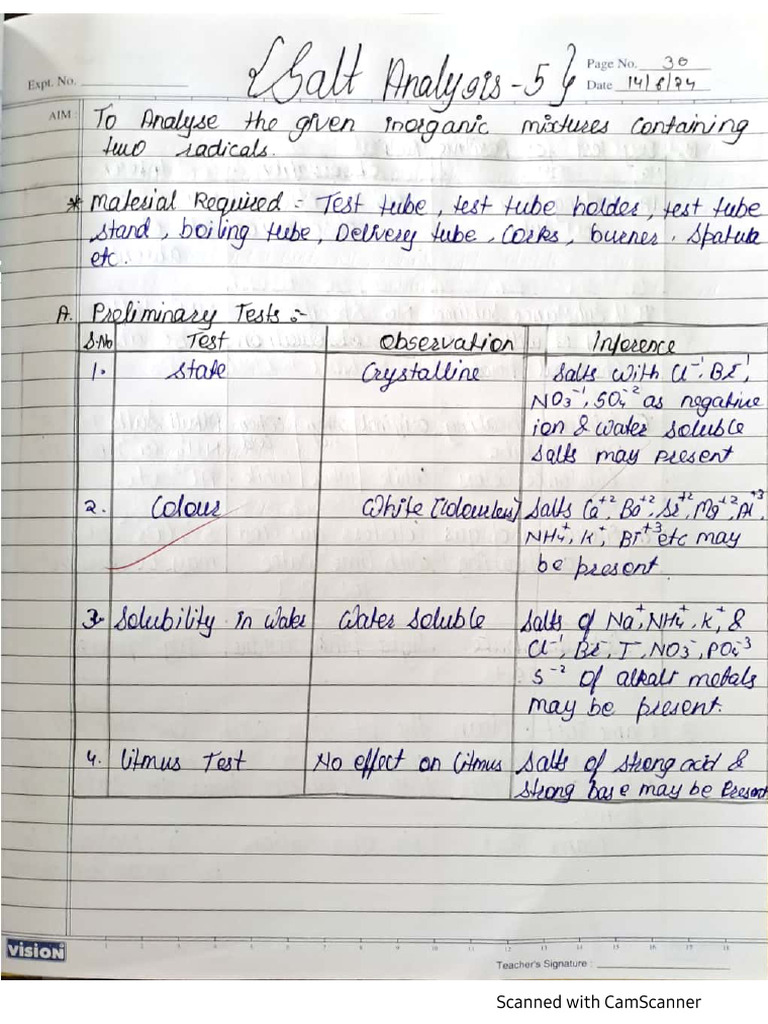 {Salt Analysis-5}
Expt. No.
Page No. 30
Date 14/8/24
AIM: To Analyse the given inorganic mixtures Containing
two radicals.
* Material Required = Test tube, test tube holder, test tube
stand, boiling tube, Delivery tube, Corks, burner. Spatula
etc.
A. Preliminary Tests :-
S.No Test Observation Inference
1. State Crystalline Salts with Cl⁻¹, Br⁻¹,
NO₃⁻¹, SO₄⁻² as negative
ion & water soluble
Salts may present
2. Colour White (Colourless) Salts Ca⁺², Ba⁺², Sr⁺², Mg⁺², Al⁺³
NH₄⁺, K⁺, Bi⁺³ etc may
be present.
3. Solubility in water Water Soluble Salts of Na⁺, NH₄⁺, K⁺ &
Cl⁻¹, Br⁻, I⁻, NO₃⁻, PO₄⁻³
S⁻² of alkali metals
may be present.
4. Litmus Test No effect on Litmus Salts of strong acid &
strong base may be Present
vision
1 2 3 4 5 6 7 8 9 10 11 12 13 14 15 16 17 18
Teacher's Signature :
Scanned with CamScanner